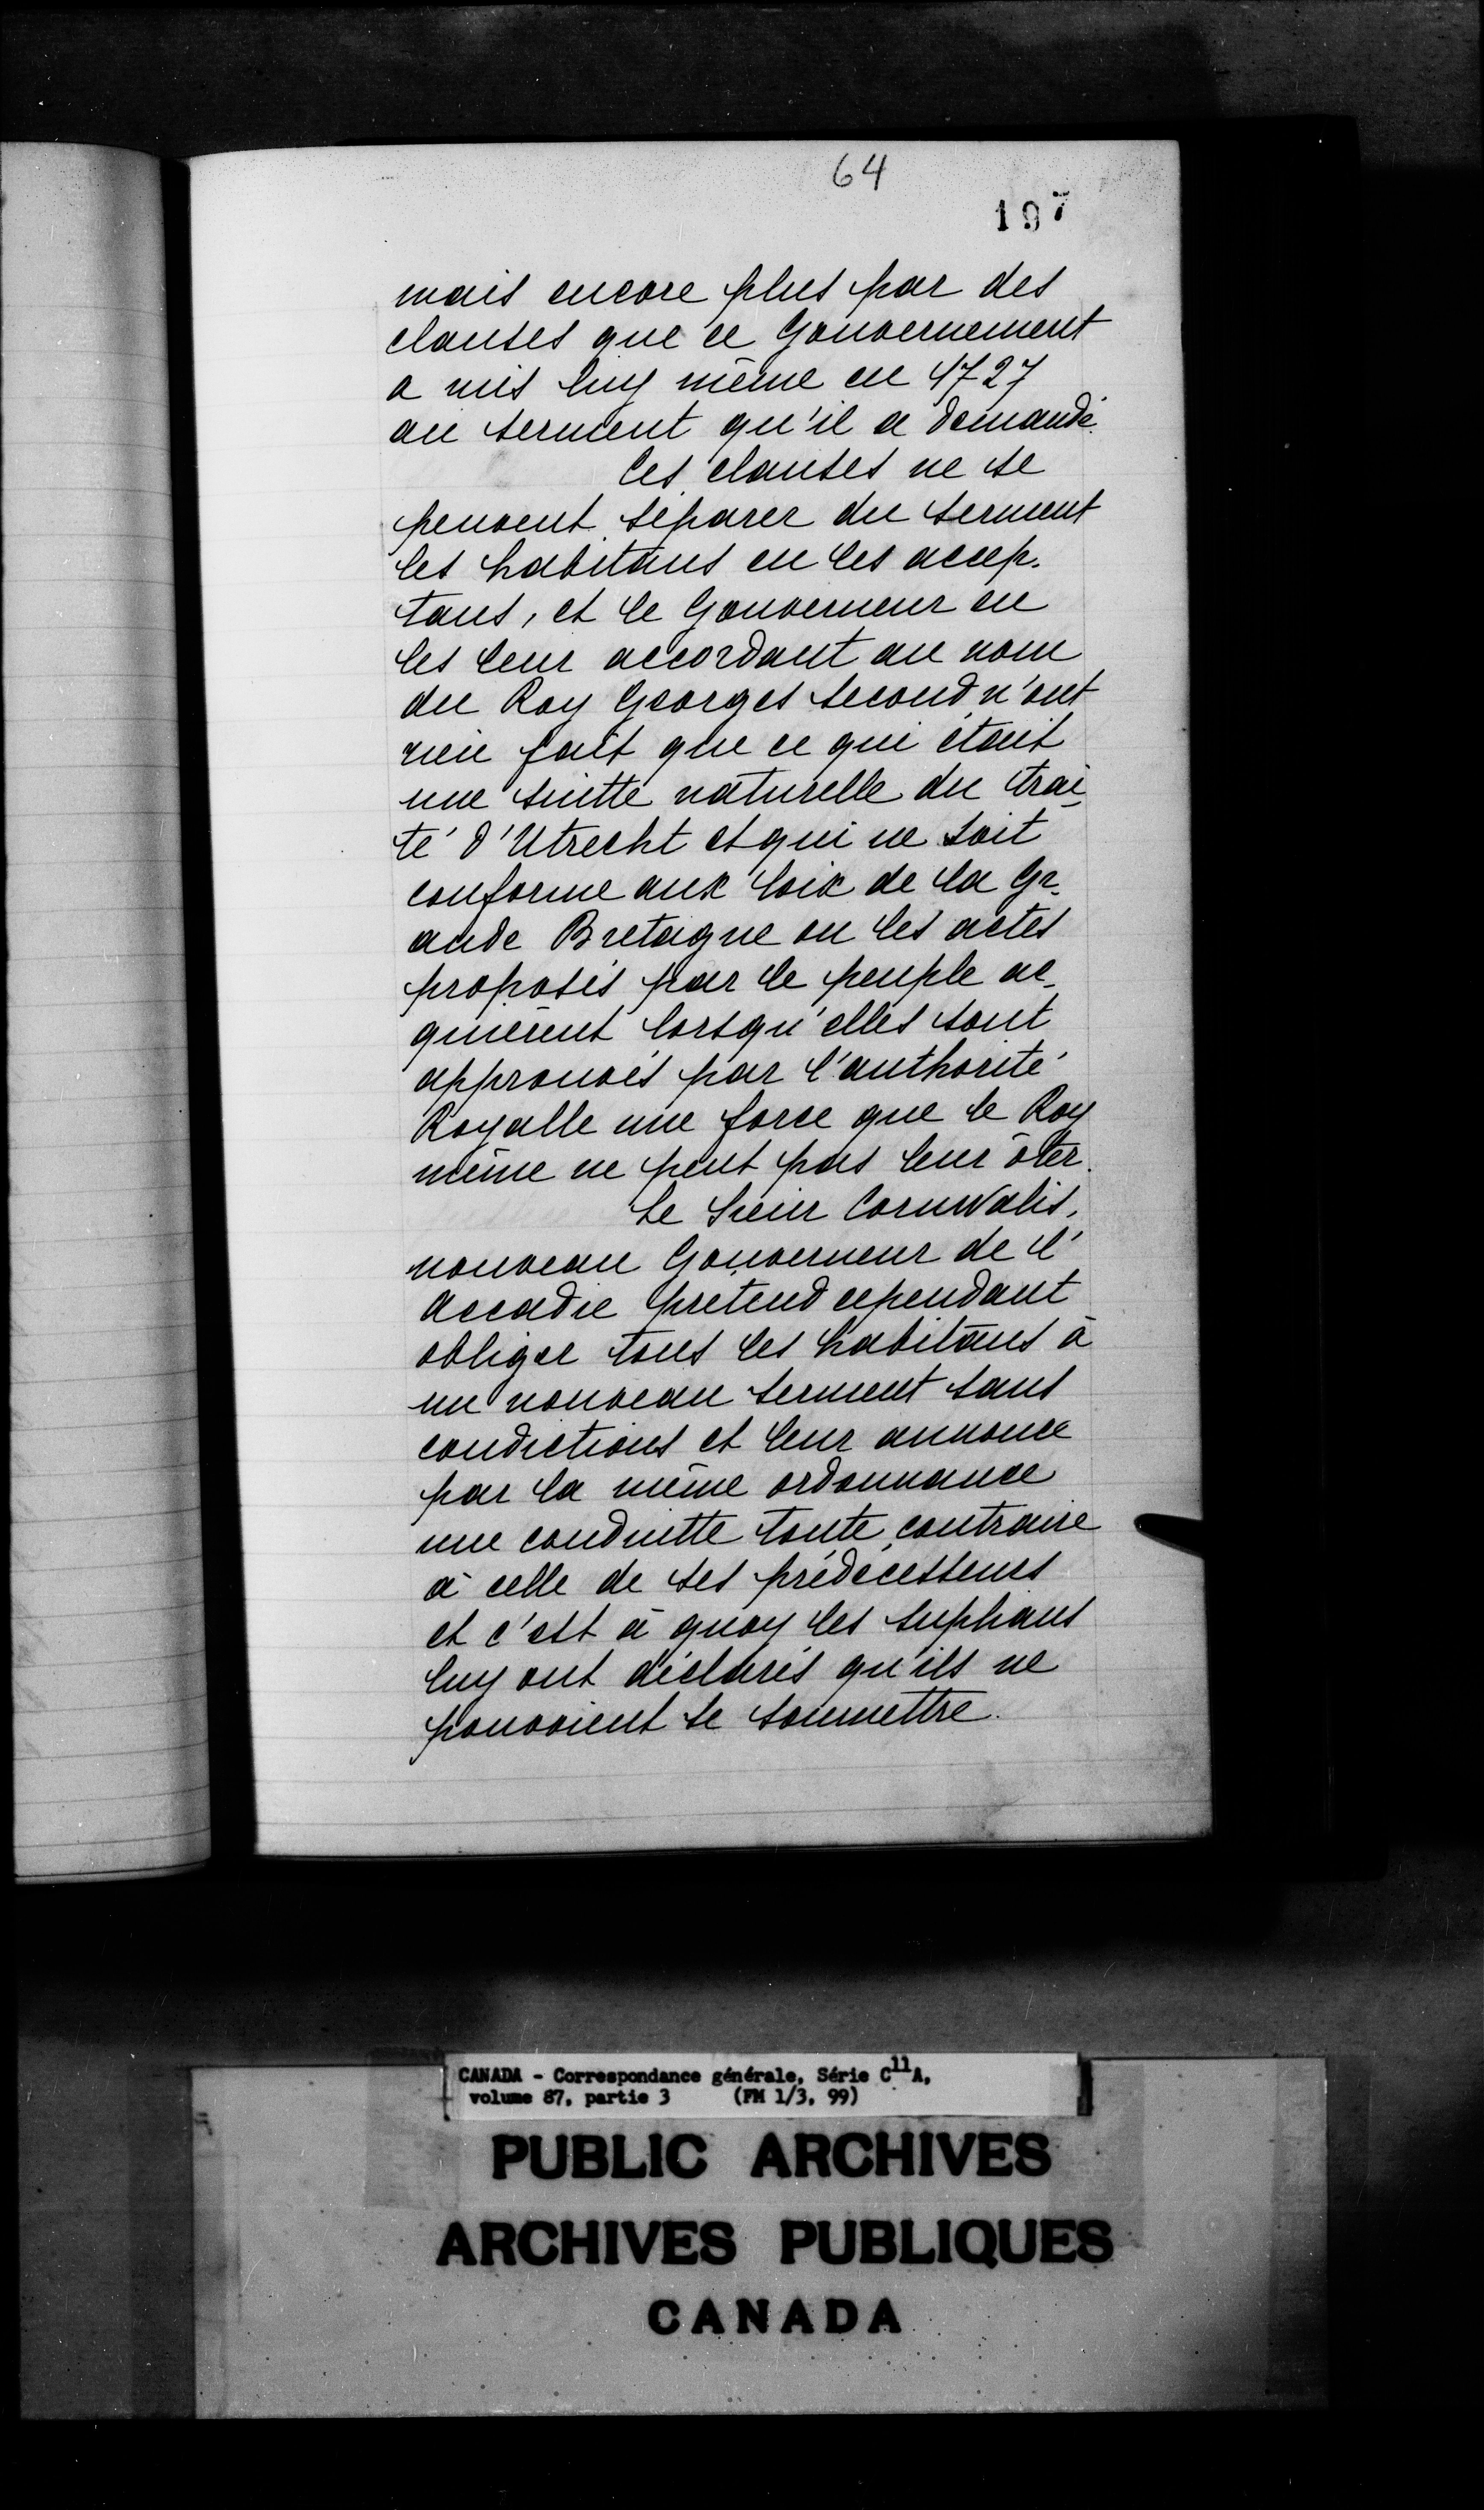 64
197
mais encore plus par des
clauses que ce Gouvernement
a mis luy même en 1727
au serment qu'il a demandé.
Ces clauses ne se
peuvent séparer du serment
les habitans en les accep-
tans, et le Gouverneur en
les leur accordant au nom
du Roy Georges second n'ont
rien fait que ce qui était
une suitte naturelle du trai-
té d'Utrecht et qui ne soit
conforme aux loix de la Gr-
ande Bretagne ou les actes
proposés par le peuple ac-
quierent lorsqu'elles sont
approuvés par l'authorité
Royalle une force que le Roy
même ne peut pas leur ôter.
Le Sieur Cornwalis,
nouveau Gouverneur de l'
Accadie prétend cependant
obliger tous les habitans à
un nouveau serment sans
condictions et leur annonce
par la même ordonnance
une conduitte toute contraire
à celle de ses prédécesseurs
et c'est à quoy les suplians
luy ont déclarés qu'ils ne
pouvoient se soumettre.
CANADA - Correspondance générale, Série C11A,
volume 87, partie 3 (FM 1/3, 99)
PUBLIC ARCHIVES
ARCHIVES PUBLIQUES
CANADA